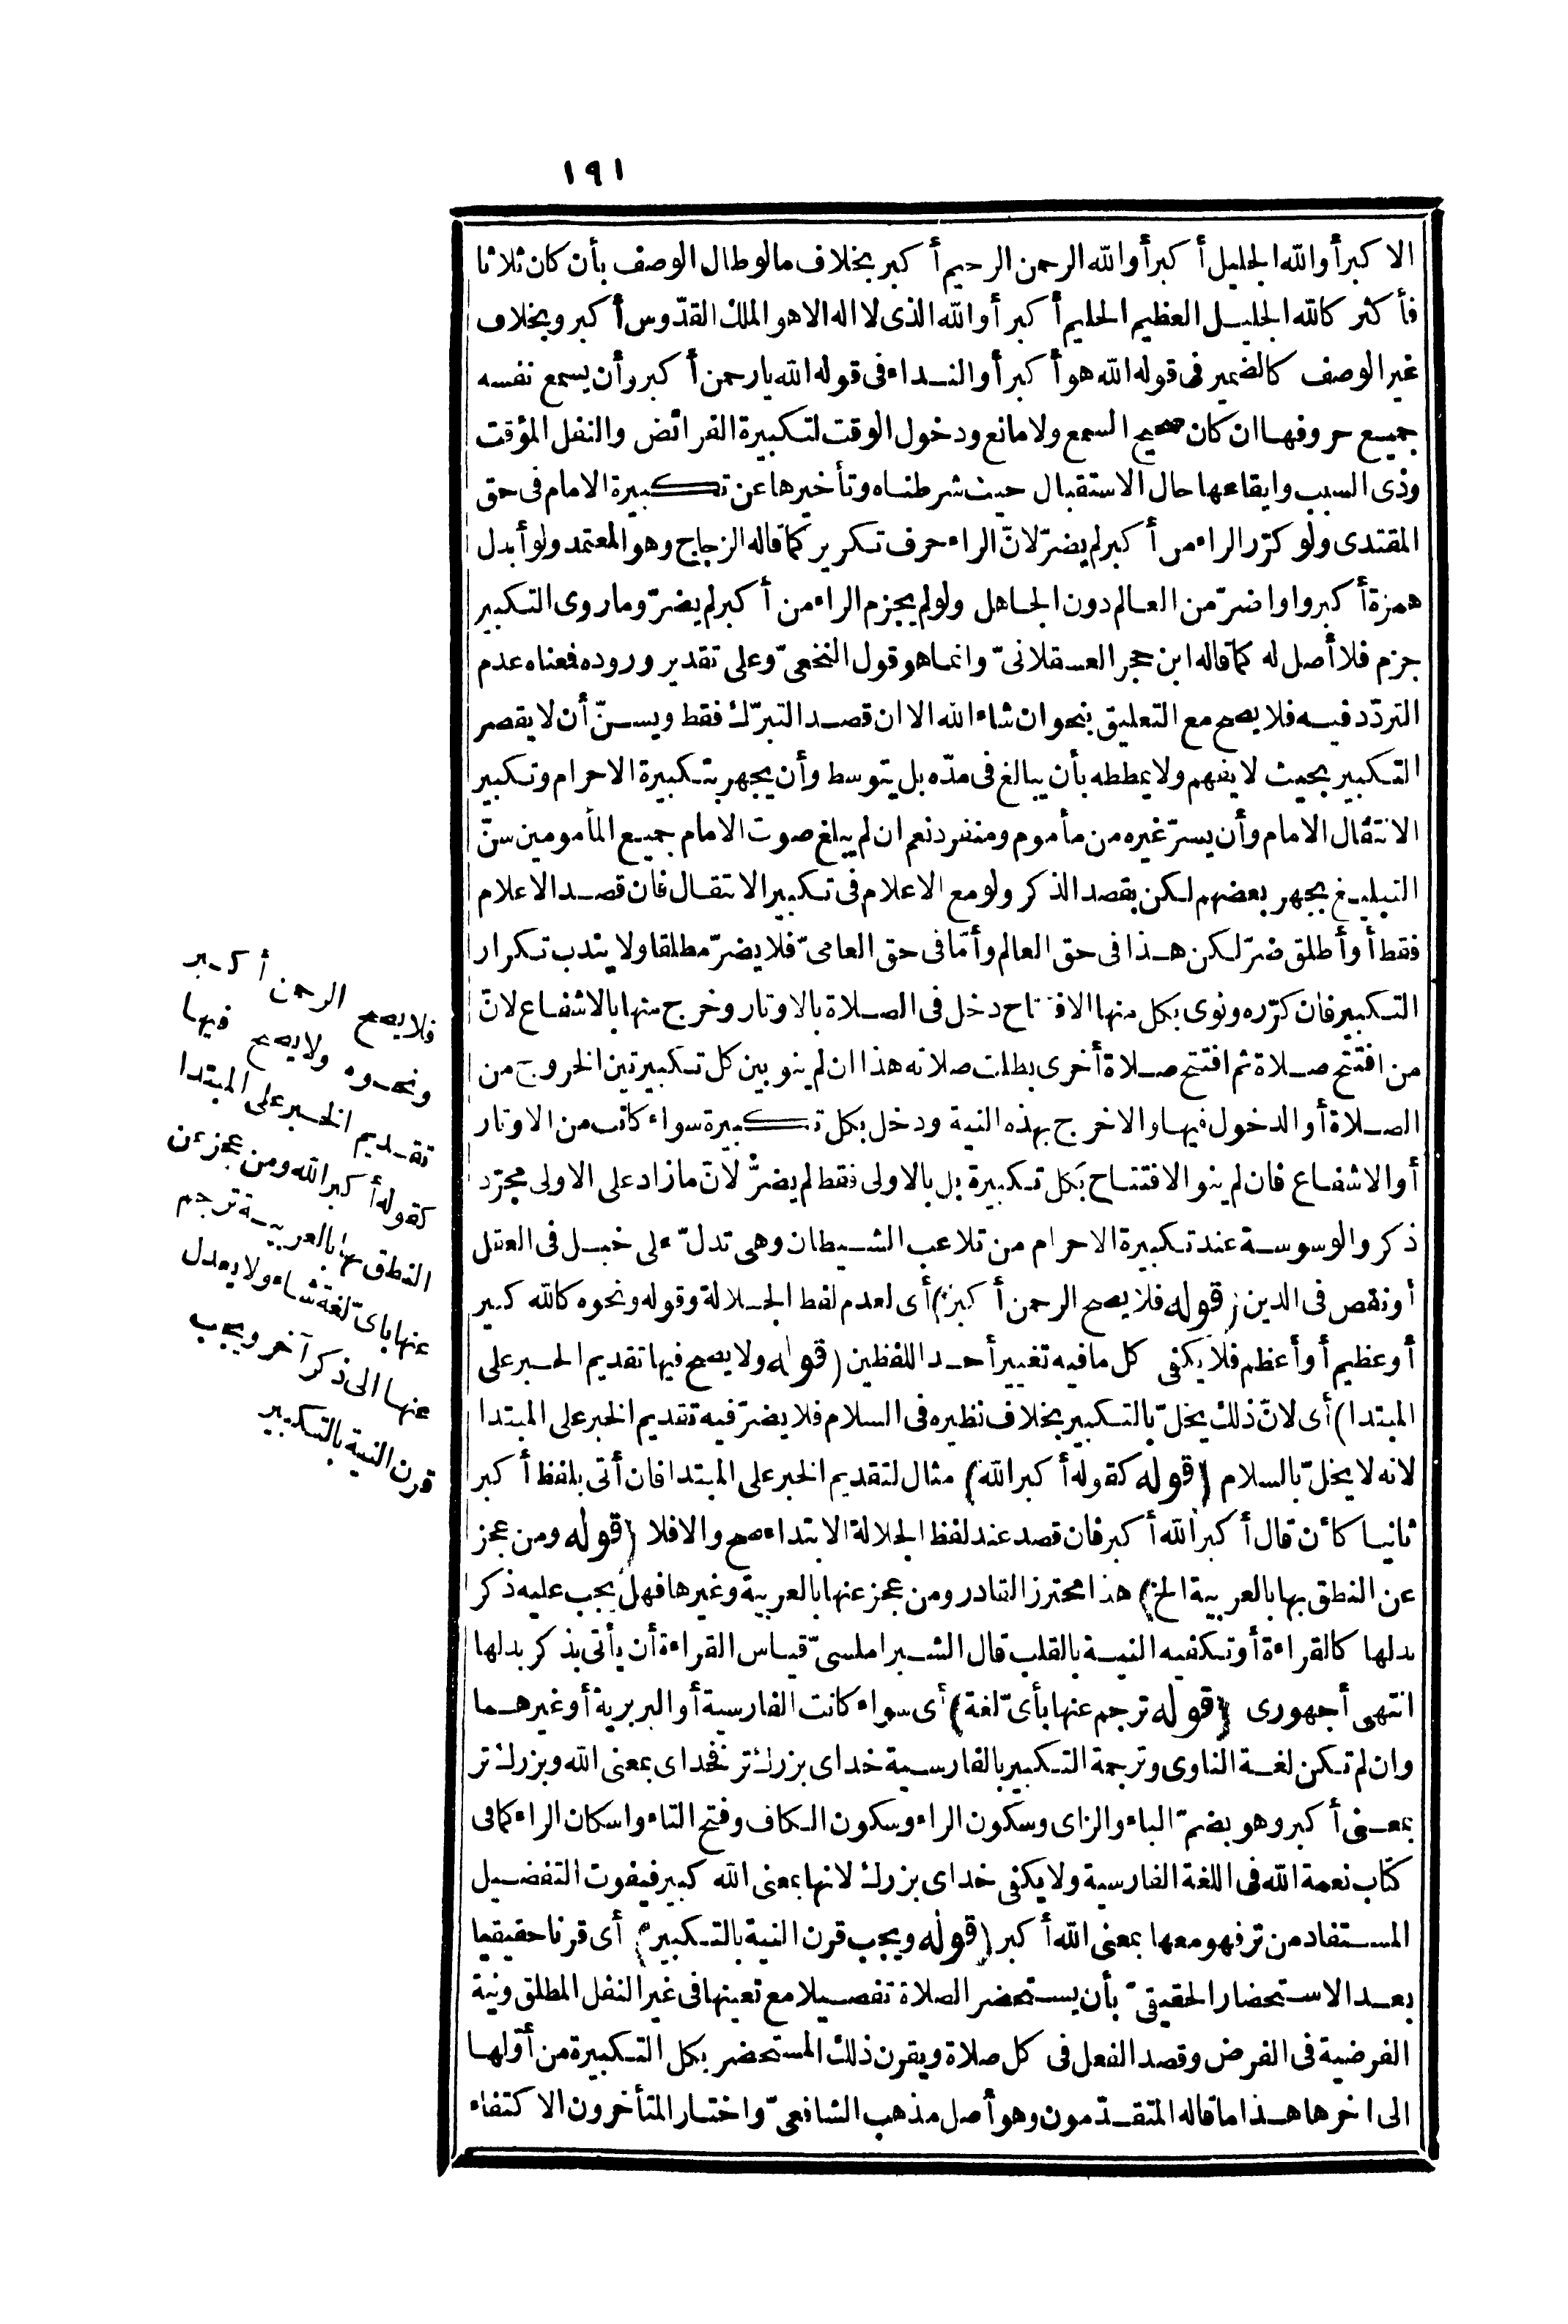 ١٩١
الاكبر أو الله الجليل أكبر أو الله الرحمن الرحيم أكبر بخلاف ما لو طال الوصف بأن كان ثلاثا
فأكثر كالله الجليل العظيم الحليم أكبر أو الله الذى لا اله الا هو الملك القدّوس أكبر وبخلاف
غير الوصف كالضمير فى قوله الله هو أكبر أو النداء فى قوله الله يارحمن أكبر وأن يسمع نفسه
جميع حروفها ان كان صحيح السمع ولا مانع ودخول الوقت لتكبيرة الفرائض والنفل المؤقت
وذى السبب وايقاعها حال الاستقبال حيث شرطناه وتأخيرها عن تكبيرة الامام فى حق
المقتدى ولو كرّر الراء من أكبر لم يضرّ لانّ الراء حرف تكرير كما قاله الزجاج وهو المعتمد ولو أبدل
همزة أكبر واوا ضرّ من العالم دون الجاهل ولو لم يجزم الراء من أكبر لم يضرّ وما روى التكبير
جزم فلا أصل له كما قاله ابن حجر العسقلانىّ وانما هو قول النخعىّ وعلى تقدير وروده فعناه عدم
التردّد فيه فلا يصح مع التعليق بنحو ان شاء الله الا ان قصد التبرّك فقط ويسنّ أن لا يقصر
التكبير بحيث لا يفهم ولا يمططه بأن يبالغ فى مدّه بل يتوسط وأن يجهر بتكبيرة الاحرام وتكبير
الانتقال الامام وأن يسرّ غيره من مأموم ومنفرد نعم ان لم يبلغ صوت الامام جميع المأمومين سنّ
التبليغ بجهر بعضهم لكن بقصد الذكر ولو مع الاعلام فى تكبير الانتقال فان قصد الاعلام
فقط أو أطلق ضرّ لكن هذا فى حق العالم وأمّا فى حق العامىّ فلا يضرّ مطلقا ولا يندب تكرار
التكبير فان كرّره ونوى بكل منها الافتتاح دخل فى الصلاة بالاوتار وخرج منها بالاشفاع لانّ
من افتتح صلاة ثم افتتح صلاة أخرى بطلت صلاته هذا ان لم ينو بين كل تكبيرتين الخروج من
الصلاة أو الدخول فيها والاخرج بهذه النية ودخل بكل تكبيرة سواء كانت من الاوتار
أو الاشفاع فان لم ينو الافتتاح بكل تكبيرة بل بالاولى فقط لم يضرّ لانّ ما زاد على الاولى مجرّد
ذكر والوسوسة عند تكبيرة الاحرام من تلاعب الشيطان وهى تدلّ على خبل فى العقل
أو نقص فى الدين (قوله فلا يصح الرحمن أكبر) أى لعدم لفظ الجلالة وقوله ونحوه كالله كبير
أو عظيم أو أعظم فلا يكفى كل ما فيه تغيير أحد اللفظين (قوله ولا يصح فيها تقديم الخبر على
المبتدا) أى لانّ ذلك يخلّ بالتكبير بخلاف نظيره فى السلام فلا يضرّ فيه تقديم الخبر على المبتدا
لانه لا يخلّ بالسلام (قوله كقوله أكبر الله) مثال لتقديم الخبر على المبتدا فان أتى بلفظ أكبر
ثانيا كأن قال أكبر الله أكبر فان قصد عند لفظ الجلالة الابتداء صح والا فلا (قوله ومن عجز
عن النطق بها بالعربية الخ) هذا محترز القادر ومن عجز عنها بالعربية وغيرها فهل يجب عليه ذكر
بدلها كالقراءة أو تكفيه النية بالقلب قال الشبراملسىّ قياس القراءة أن يأتى بذكر بدلها
انتهى أجهورى (قوله ترجم عنها بأىّ لغة) أى سواء كانت الفارسية أو البربرية أو غيرهما
وان لم تكن لغة الناوى وترجمة التكبير بالفارسية خداى بزرك تر فخداى بمعنى الله وبزرك تر
بمعنى أكبر وهو بضمّ الباء والزاى وسكون الراء وسكون الكاف وفتح التاء واسكان الراء كما فى
كتاب نعمة الله فى اللغة الفارسية ولا يكفى خداى بزرك لانها بمعنى الله كبير فيفوت التفضيل
المستفاد من تر فهو معها بمعنى الله أكبر (قوله ويجب قرن النية بالتكبير) أى قرنا حقيقيا
بعد الاستحضار الحقيقىّ بأن يستحضر الصلاة تفصيلا مع تعينها فى غير النفل المطلق ونية
الفرضية فى الفرض وقصد الفعل فى كل صلاة ويقرن ذلك المستحضر بكل التكبيرة من أوّلها
الى اخرها هذا ما قاله المتقدّمون وهو أصل مذهب الشافعىّ واختار المتأخرون الاكتفاء
فلا يصح الرحمن أكبر
ونحوه ولا يصح فيها
تقديم الخبر على المبتدا
كقوله أكبر الله ومن عجز عن
النطق بها بالعربية ترجم
عنها باىّ لغة شاء ولا يعدل
عنها الى ذكر آخر ويجب
قرن النية بالتكبير